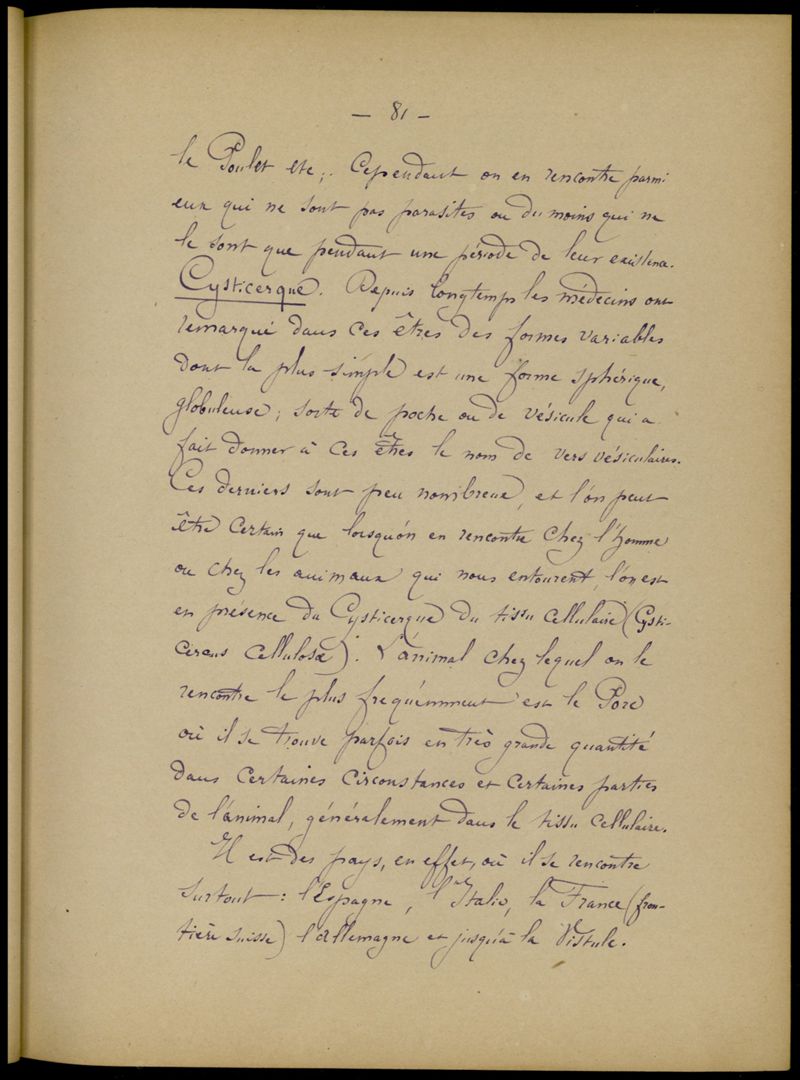 — 81 —
le Poulet etc;. Cependant on en rencontre parmi
eux qui ne sont pas parasites ou du moins qui ne
le sont que pendant une période de leur existence.
Cysticerque. Depuis longtemps les médecins ont
remarqué dans ces êtres des formes variables
dont la plus simple est une forme sphérique,
globuleuse; sorte de poche ou de vésicule qui a
fait donner à ces êtres le nom de vers vésiculaires.
Ces derniers sont peu nombreux, et l'on peut
être certain que lorsqu'on en rencontre chez l'homme
ou chez les animaux qui nous entourent, l'on est
en présence du Cysticerque du tissu cellulaire (Cysti-
cercus cellulosæ). L'animal chez lequel on le
rencontre le plus fréquemment est le Porc
où il se trouve parfois en très grande quantité
dans certaines circonstances et certaines parties
de l'animal, généralement dans le tissu cellulaire.
Il est des pays, en effet, où il se rencontre
surtout: l'Espagne, l'Italie, la France (fron-
tière suisse) l'Allemagne et jusqu'à la Vistule.